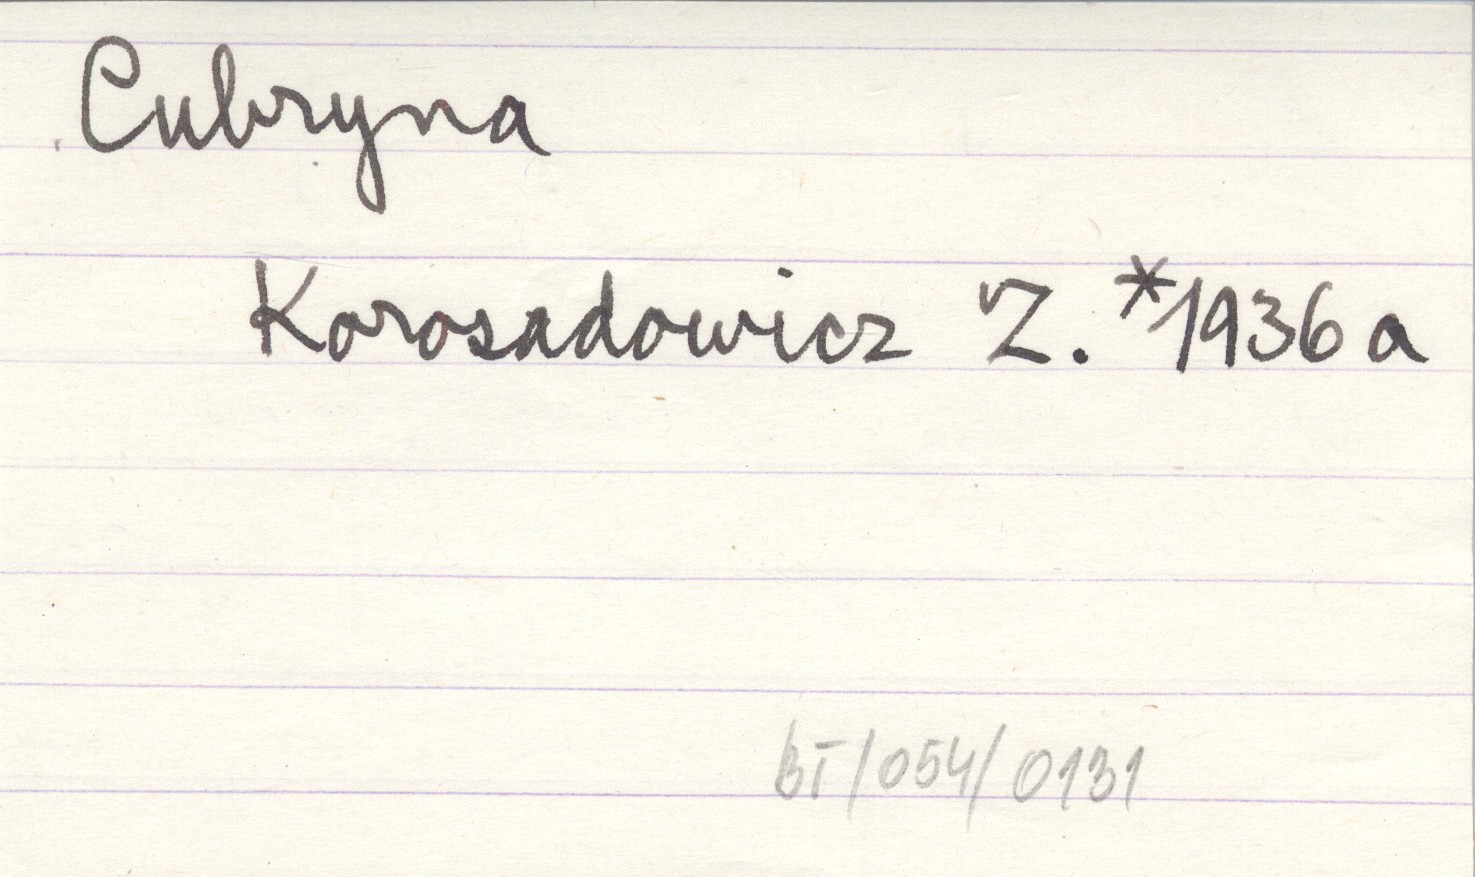 Cubryna
Korosadowicz Z. *1936 a
BT/054/0131